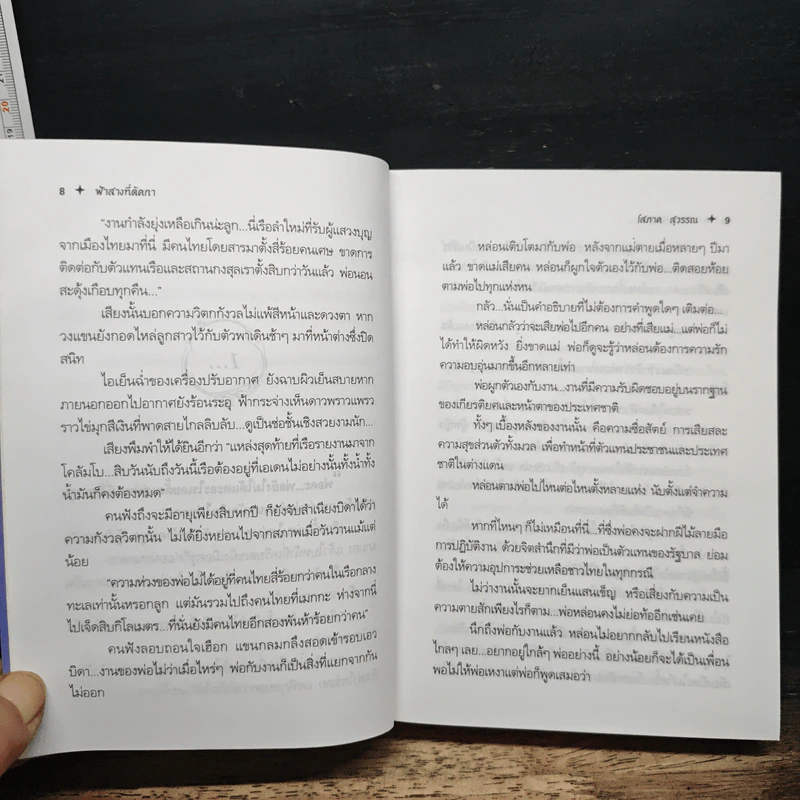 8 ✦ ฟ้าสางที่ดัดกา
“งานกำลังยุ่งเหลือเกินน่ะลูก...นี่เรือลำใหม่ที่รับผู้แสวงบุญ
จากเมืองไทยมาที่นี่ มีคนไทยโดยสารมาตั้งสี่ร้อยคนเศษ ขาดการ
ติดต่อกับตัวแทนเรือและสถานกงสุลเราตั้งสิบกว่าวันแล้ว พ่อนอน
สะดุ้งเกือบทุกคืน...”
เสียงนั้นบอกความวิตกกังวลไม่แพ้สีหน้าและดวงตา หาก
วงแขนยังกอดไหล่ลูกสาวไว้กับตัวพาเดินช้าๆ มาที่หน้าต่างซึ่งปิด
สนิท
ไอเย็นฉ่ำของเครื่องปรับอากาศ ยังฉาบผิวเย็นสบายหาก
ภายนอกออกไปอากาศยังร้อนระอุ ฟ้ากระจ่างเห็นดาวพราวแพรว
ราวไข่มุกสีเงินที่พาดสายไกลลิบลับ...ดูเป็นช่อชั้นเชิงสวยงามนัก...
เสียงพึมพำให้ได้ยินอีกว่า “แหล่งสุดท้ายที่เรือรายงานมาจาก
โคลัมโบ...สิบวันนับถึงวันนี้เรือต้องอยู่ที่เอเดนไม่อย่างนั้นทั้งน้ำทั้ง
น้ำมันก็คงต้องหมด”
คนฟังถึงจะมีอายุเพียงสิบหกปี ก็ยังจับสำเนียงบิดาได้ว่า
ความกังวลวิตกนั้น ไม่ได้ยิ่งหย่อนไปจากสภาพเมื่อวันวานแม้แต่
น้อย
“ความห่วงของพ่อไม่ได้อยู่ที่คนไทยสี่ร้อยกว่าคนในเรือกลาง
ทะเลเท่านั้นหรอกลูก แต่มันรวมไปถึงคนไทยที่เมกกะ ห่างจากนี่
ไปเจ็ดสิบกิโลเมตร...ที่นั่นยังมีคนไทยอีกสองพันห้าร้อยกว่าคน”
คนฟังลอบถอนใจเฮือก แขนกลมกลึงสอดเข้ารอบเอว
บิดา...งานของพ่อไม่ว่าเมื่อไหร่ๆ พ่อกับงานก็เป็นสิ่งที่แยกจากกัน
ไม่ออก
โสภาค สุวรรณ ✦ 9
หล่อนเติบโตมากับพ่อ หลังจากแม่ตายเมื่อหลายๆ ปีมา
แล้ว ขาดแม่เสียคน หล่อนก็ผูกใจตัวเองไว้กับพ่อ...ติดสอยห้อย
ตามพ่อไปทุกแห่งหน
กลัว...นั่นเป็นคำอธิบายที่ไม่ต้องการคำพูดใดๆ เติมต่อ...
หล่อนกลัวว่าจะเสียพ่อไปอีกคน อย่างที่เสียแม่...แต่พ่อก็ไม่
ได้ทำให้ผิดหวัง ยิ่งขาดแม่ พ่อก็ดูจะรู้ว่าหล่อนต้องการความรัก
ความอบอุ่นมากขึ้นอีกหลายเท่า
พ่อผูกตัวเองกับงาน...งานที่มีความรับผิดชอบอยู่บนรากฐาน
ของเกียรติยศและหน้าตาของประเทศชาติ
ทั้งๆ เบื้องหลังของงานนั้น คือความซื่อสัตย์ การเสียสละ
ความสุขส่วนตัวทั้งมวล เพื่อทำหน้าที่ตัวแทนประชาชนและประเทศ
ชาติในต่างแดน
หล่อนตามพ่อไปไหนต่อไหนตั้งหลายแห่ง นับตั้งแต่จำความ
ได้
หากที่ไหนๆ ก็ไม่เหมือนที่นี่...ที่ซึ่งพ่อคงจะฝากฝีไม้ลายมือ
การปฏิบัติงาน ด้วยจิตสำนึกที่มีว่าพ่อเป็นตัวแทนของรัฐบาล ย่อม
ต้องให้ความอุปการะช่วยเหลือชาวไทยในทุกกรณี
ไม่ว่างานนั้นจะยากเย็นแสนเข็ญ หรือเสี่ยงกับความเป็น
ความตายสักเพียงไรก็ตาม...พ่อหล่อนคงไม่ย่อท้ออีกเช่นเคย
นึกถึงพ่อกับงานแล้ว หล่อนไม่อยากกลับไปเรียนหนังสือ
ไกลๆ เลย...อยากอยู่ใกล้ๆ พ่ออย่างนี้ อย่างน้อยก็จะได้เป็นเพื่อน
พ่อไม่ให้พ่อเหงาแต่พ่อก็พูดเสมอว่า
19
20
21